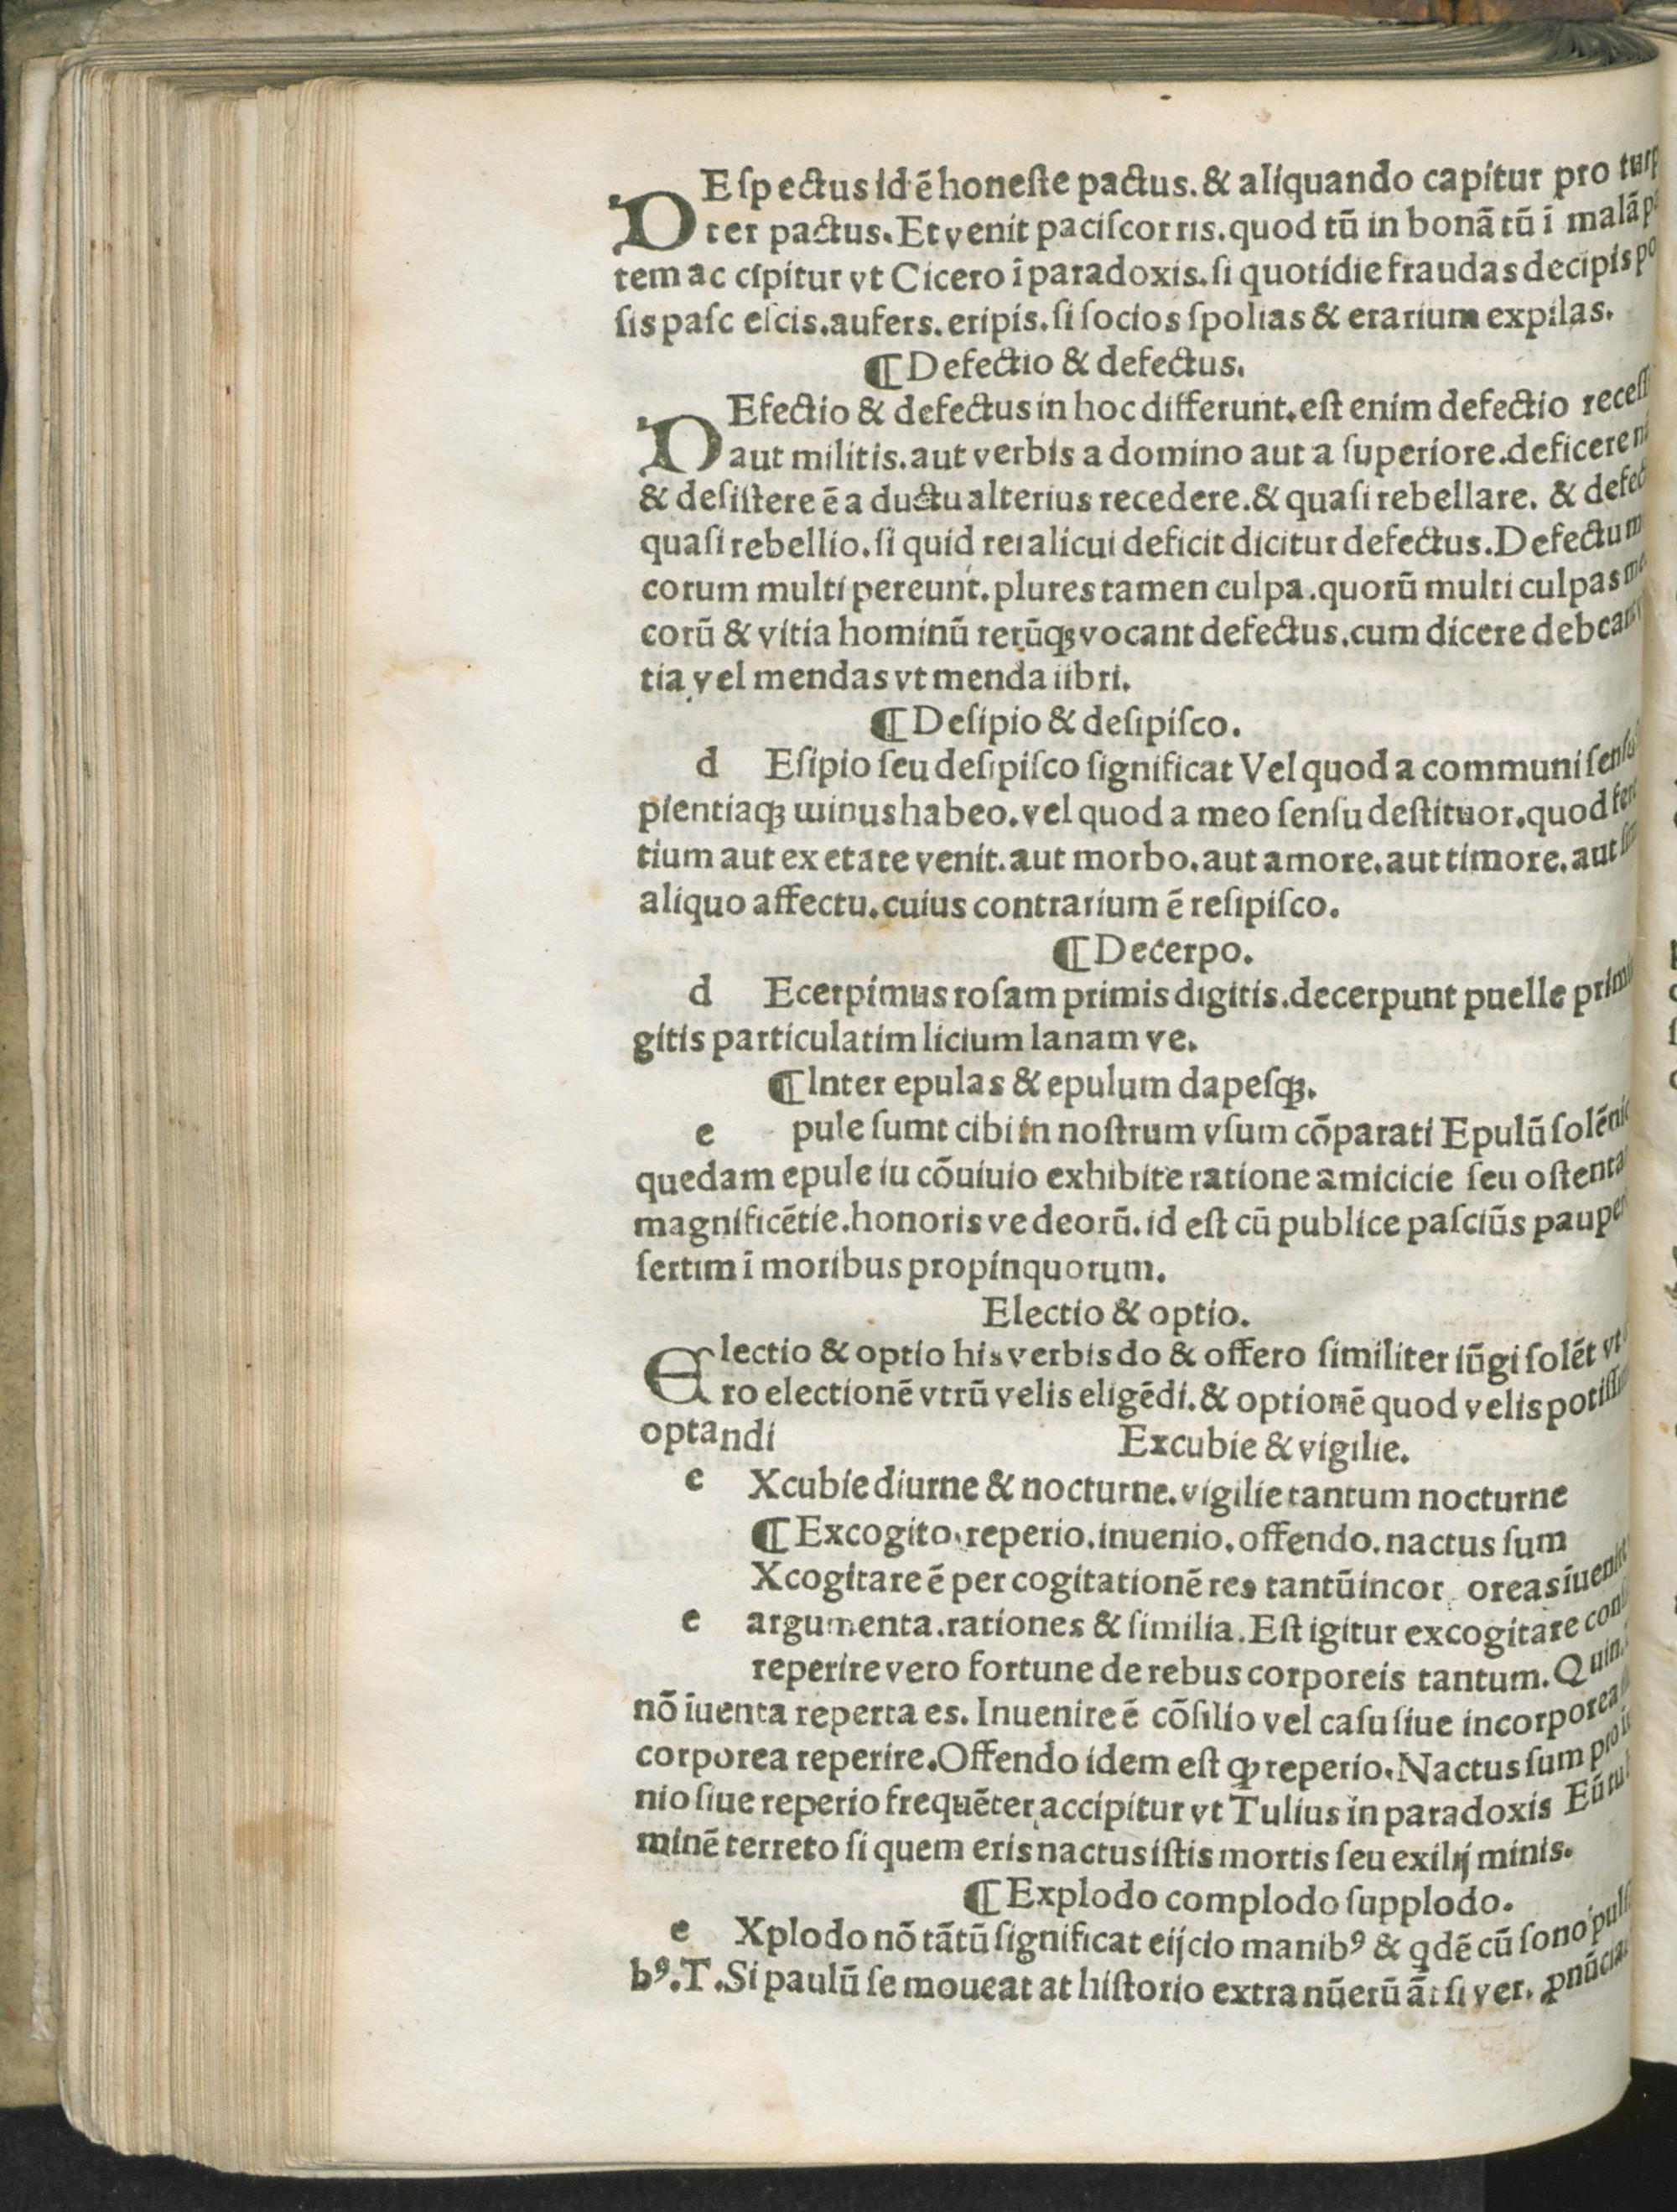 DEſpectus id ē honeſte pactus. & aliquando capitur pro
ter pactus. Et venit paciſcor ris. quod tū in bonā tū ī malā
tem ac cipitur vt Cicero ī paradoxis. ſi quotidie fraudas decipis
ſis paſc eſcis. aufers. eripis. ſi ſocios ſpolias & erarium expilas.
¶ Defectio & defectus.
DEfectio & defectus in hoc differunt. eſt enim defectio
aut militis. aut verbis a domino aut a ſuperiore. deficere
& deſiſtere ē a ductu alterius recedere. & quaſi rebellare. &
quaſi rebellio. ſi quid rei alicui deficit dicitur defectus. Defectu
corum multi pereunt. plures tamen culpa. quorū multi culpas
corū & vitia hominū rerūqȝ vocant defectus. cum dicere
tia vel mendas vt menda iibri.
¶ Deſipio & deſipiſco.
d Eſipio ſeu deſipiſco ſignificat Vel quod a communi
pientiaqȝ minus habeo. vel quod a meo ſenſu deſtituor. quod
tium aut ex etate venit. aut morbo. aut amore. aut timore. aut
aliquo affectu. cuius contrarium ē reſipiſco.
¶ Decerpo.
d Ecerpimus roſam primis digitis. decerpunt puelle
gitis particulatim licium lanam ve.
¶ Inter epulas & epulum dapeſqȝ.
e pule ſumt cibi in noſtrum vſum cōparati Epulū
quedam epule iu cōuiuio exhibite ratione amicicie ſeu
magnificētie. honoris ve deorū. id eſt cū publice paſciūs
ſertim ī moribus propinquorum.
Electio & optio.
Electio & optio his verbis do & offero ſimiliter iūgi ſolēt vt
ro electionē vtrū velis eligēdi. & optionē quod velis
optandi Excubie & vigilie.
e Xcubie diurne & nocturne. vigilie tantum nocturne
¶ Excogito. reperio. inuenio. offendo. nactus ſum
Xcogitare ē per cogitationē res tantū incor oreas
e argumenta. rationes & ſimilia. Eſt igitur excogitare
reperire vero fortune de rebus corporeis tantum.
nō īuenta reperta es. Inuenire ē cōſilio vel caſu ſiue
corporea reperire. Offendo idem eſt ꝙ reperio. Nactus ſum
nio ſiue reperio frequēter accipitur vt Tulius in paradoxis
minē terreto ſi quem eris nactus iſtis mortis ſeu exilij minis.
¶ Explodo complodo ſupplodo.
e Xplodo nō tātū ſignificat eijcio manibꝰ & qdē cū ſono
bꝰ. T. Si paulū ſe moueat at hiſtorio extra nūerū āt ſi ver.